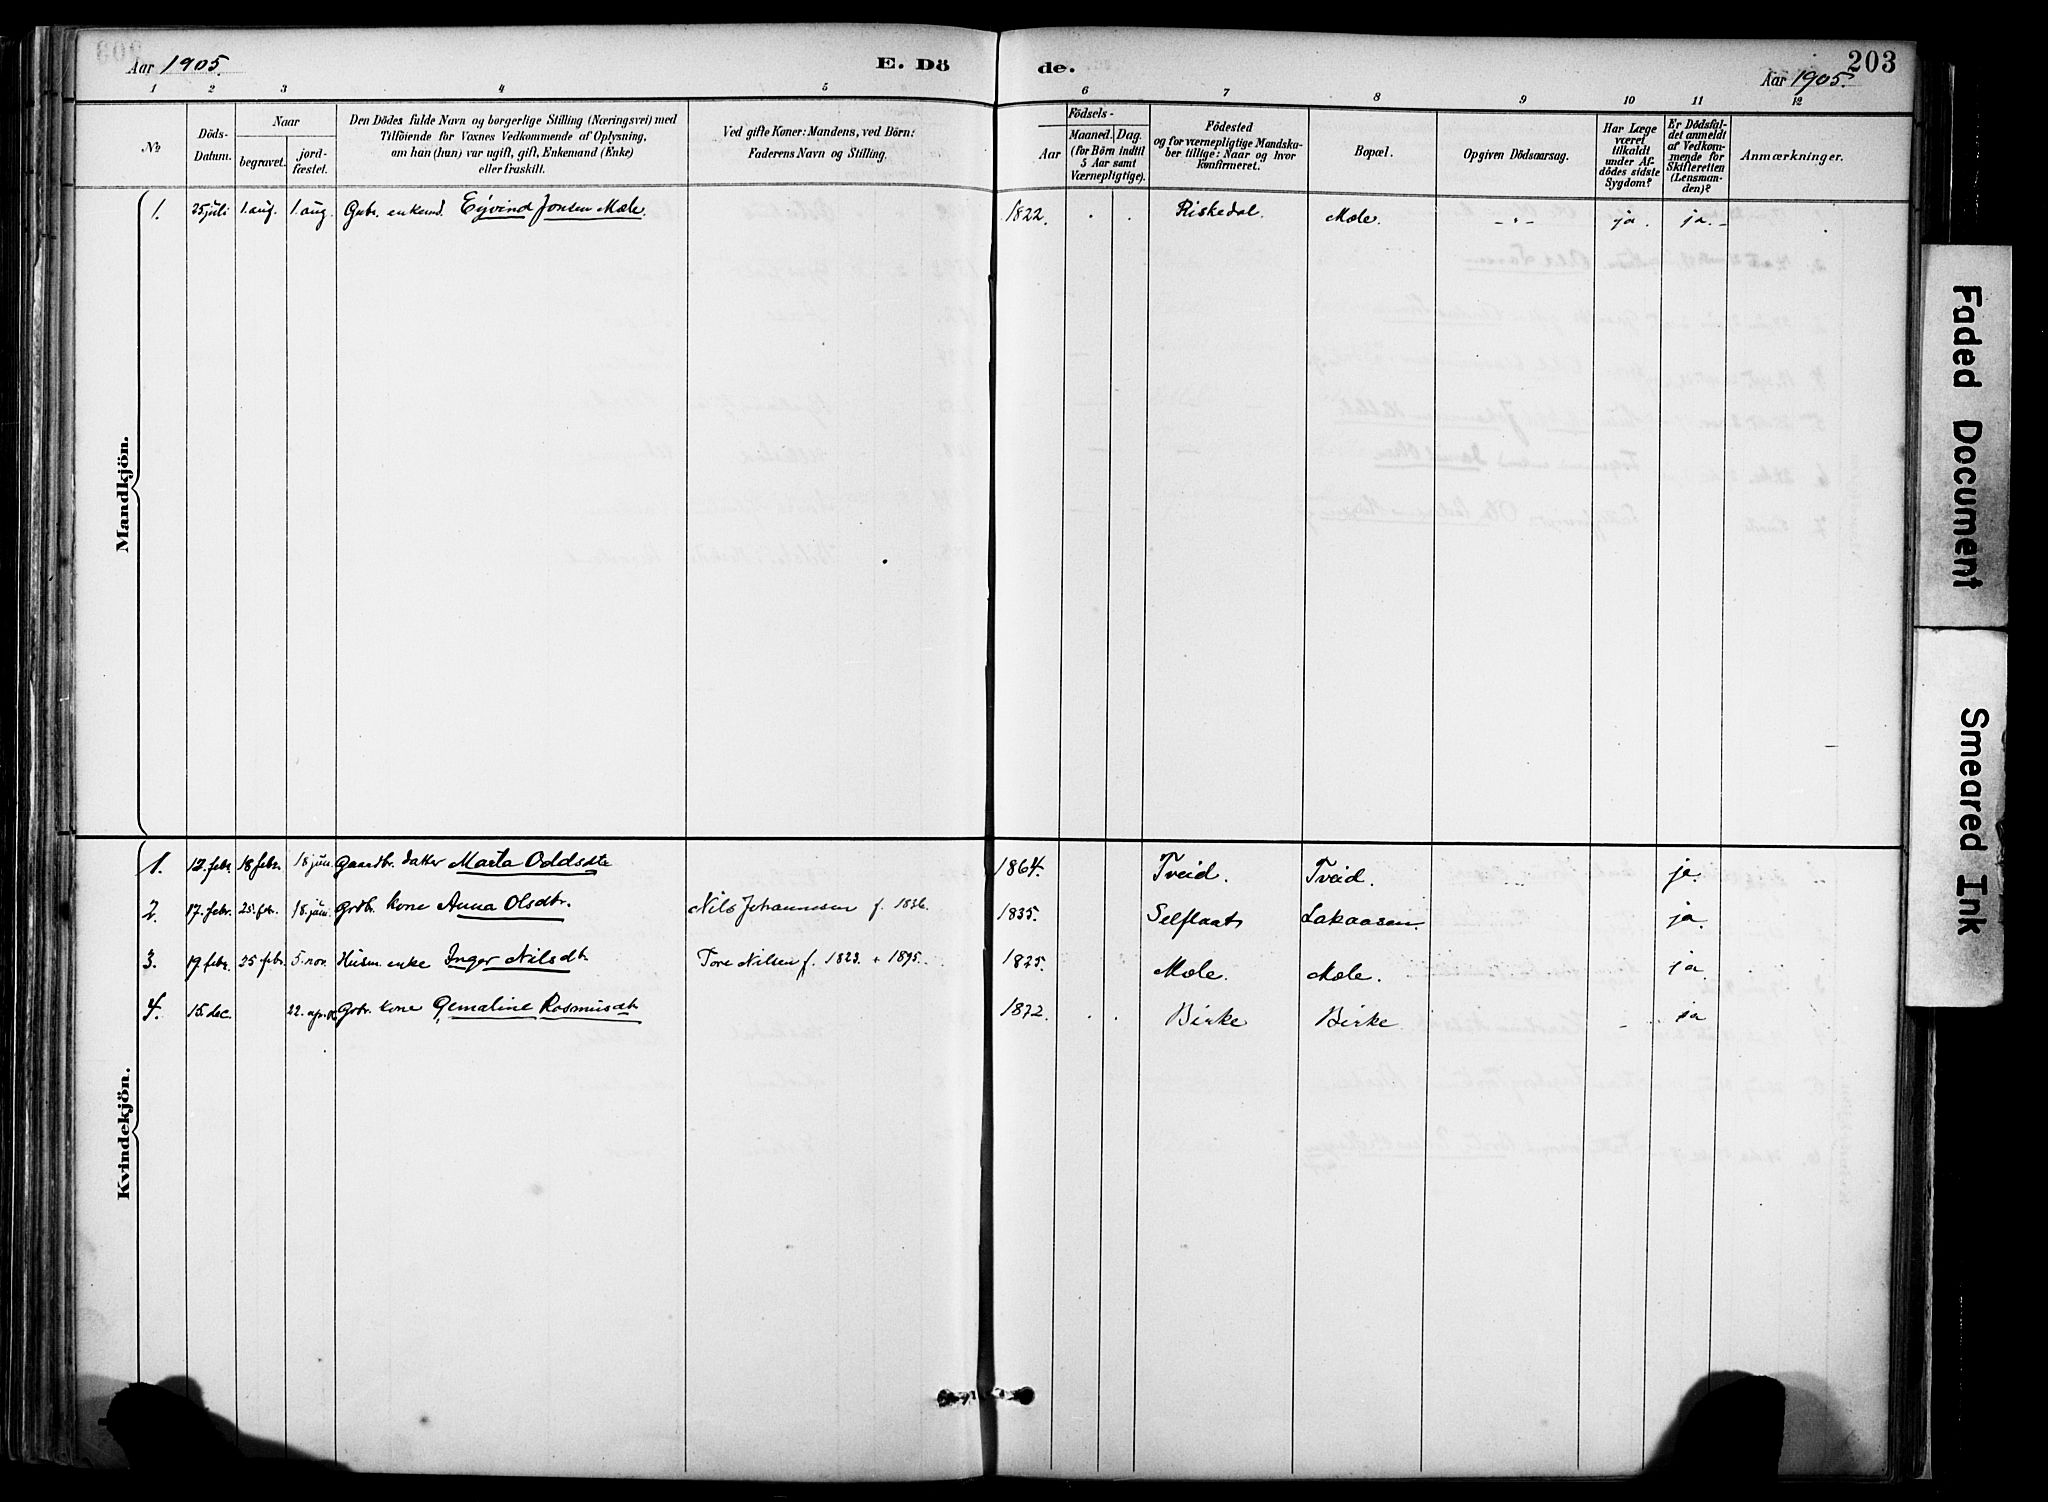 Aar 1905.
E. Dö
de.
203
Aar 1905.
1 2 3 4 5 6 7 8 9 10 11 12
No
Döds-
Datum.
Naar
begravet.
jord-
fæstet.
Den Dödes fulde Navn og borgerlige Stilling (Næringsvei) med
Tilföiende for Voxnes Vedkommende af Oplysning,
om han (hun) var ugift, gift, Enkemand (Enke)
eller fraskilt.
Ved gifte Koner: Mandens, ved Börn:
Faderens Navn og Stilling.
Födsels-
Aar
Maaned. Dag.
(for Börn indtil
5 Aar samt
Værnepligtige).
Födested
og for værnepligtige Mandska-
ber tillige: Naar og hvor
konfirmeret.
Bopæl.
Opgiven Dödsaarsag.
Har Læge
været
tilkaldt
under Af-
dödes sidste
Sygdom?
Er Dödsfal-
det anmeldt
af Vedkom-
mende for
Skifteretten
(Lensman-
den)?
Anmærkninger.
Mandkjön.
1. 25 juli 1. aug. 1. aug. Gabr. enkem. Eyvind Jonsen Mæle. 1822. Riskedal. Mæle. - " - ja. ja.
Kvindekjön.
1. 12. febr. 18 febr. 18 jun. Gaardbr. datter Marta Oddsdtr 1864. Tveid. Tveid. ja.
2. 17. febr. 25. febr. 18. jun. Grdbr. kone Anna Olsdtr. Nils Johannesen f. 1836. 1835. Selflaat Lakaasen. ja.
3. 19 febr. 25 febr. 5. nov. Husm. enke Inger Nilsdtr. Tore Nilsen f. 1823. + 1895. 1825. Mæle. Mæle. ja
4. 15. dec. 22. apr. Grbr. kone Gemaline Rasmusdtr 1872. Birke Birke ja
Faded Document
Smeared Ink